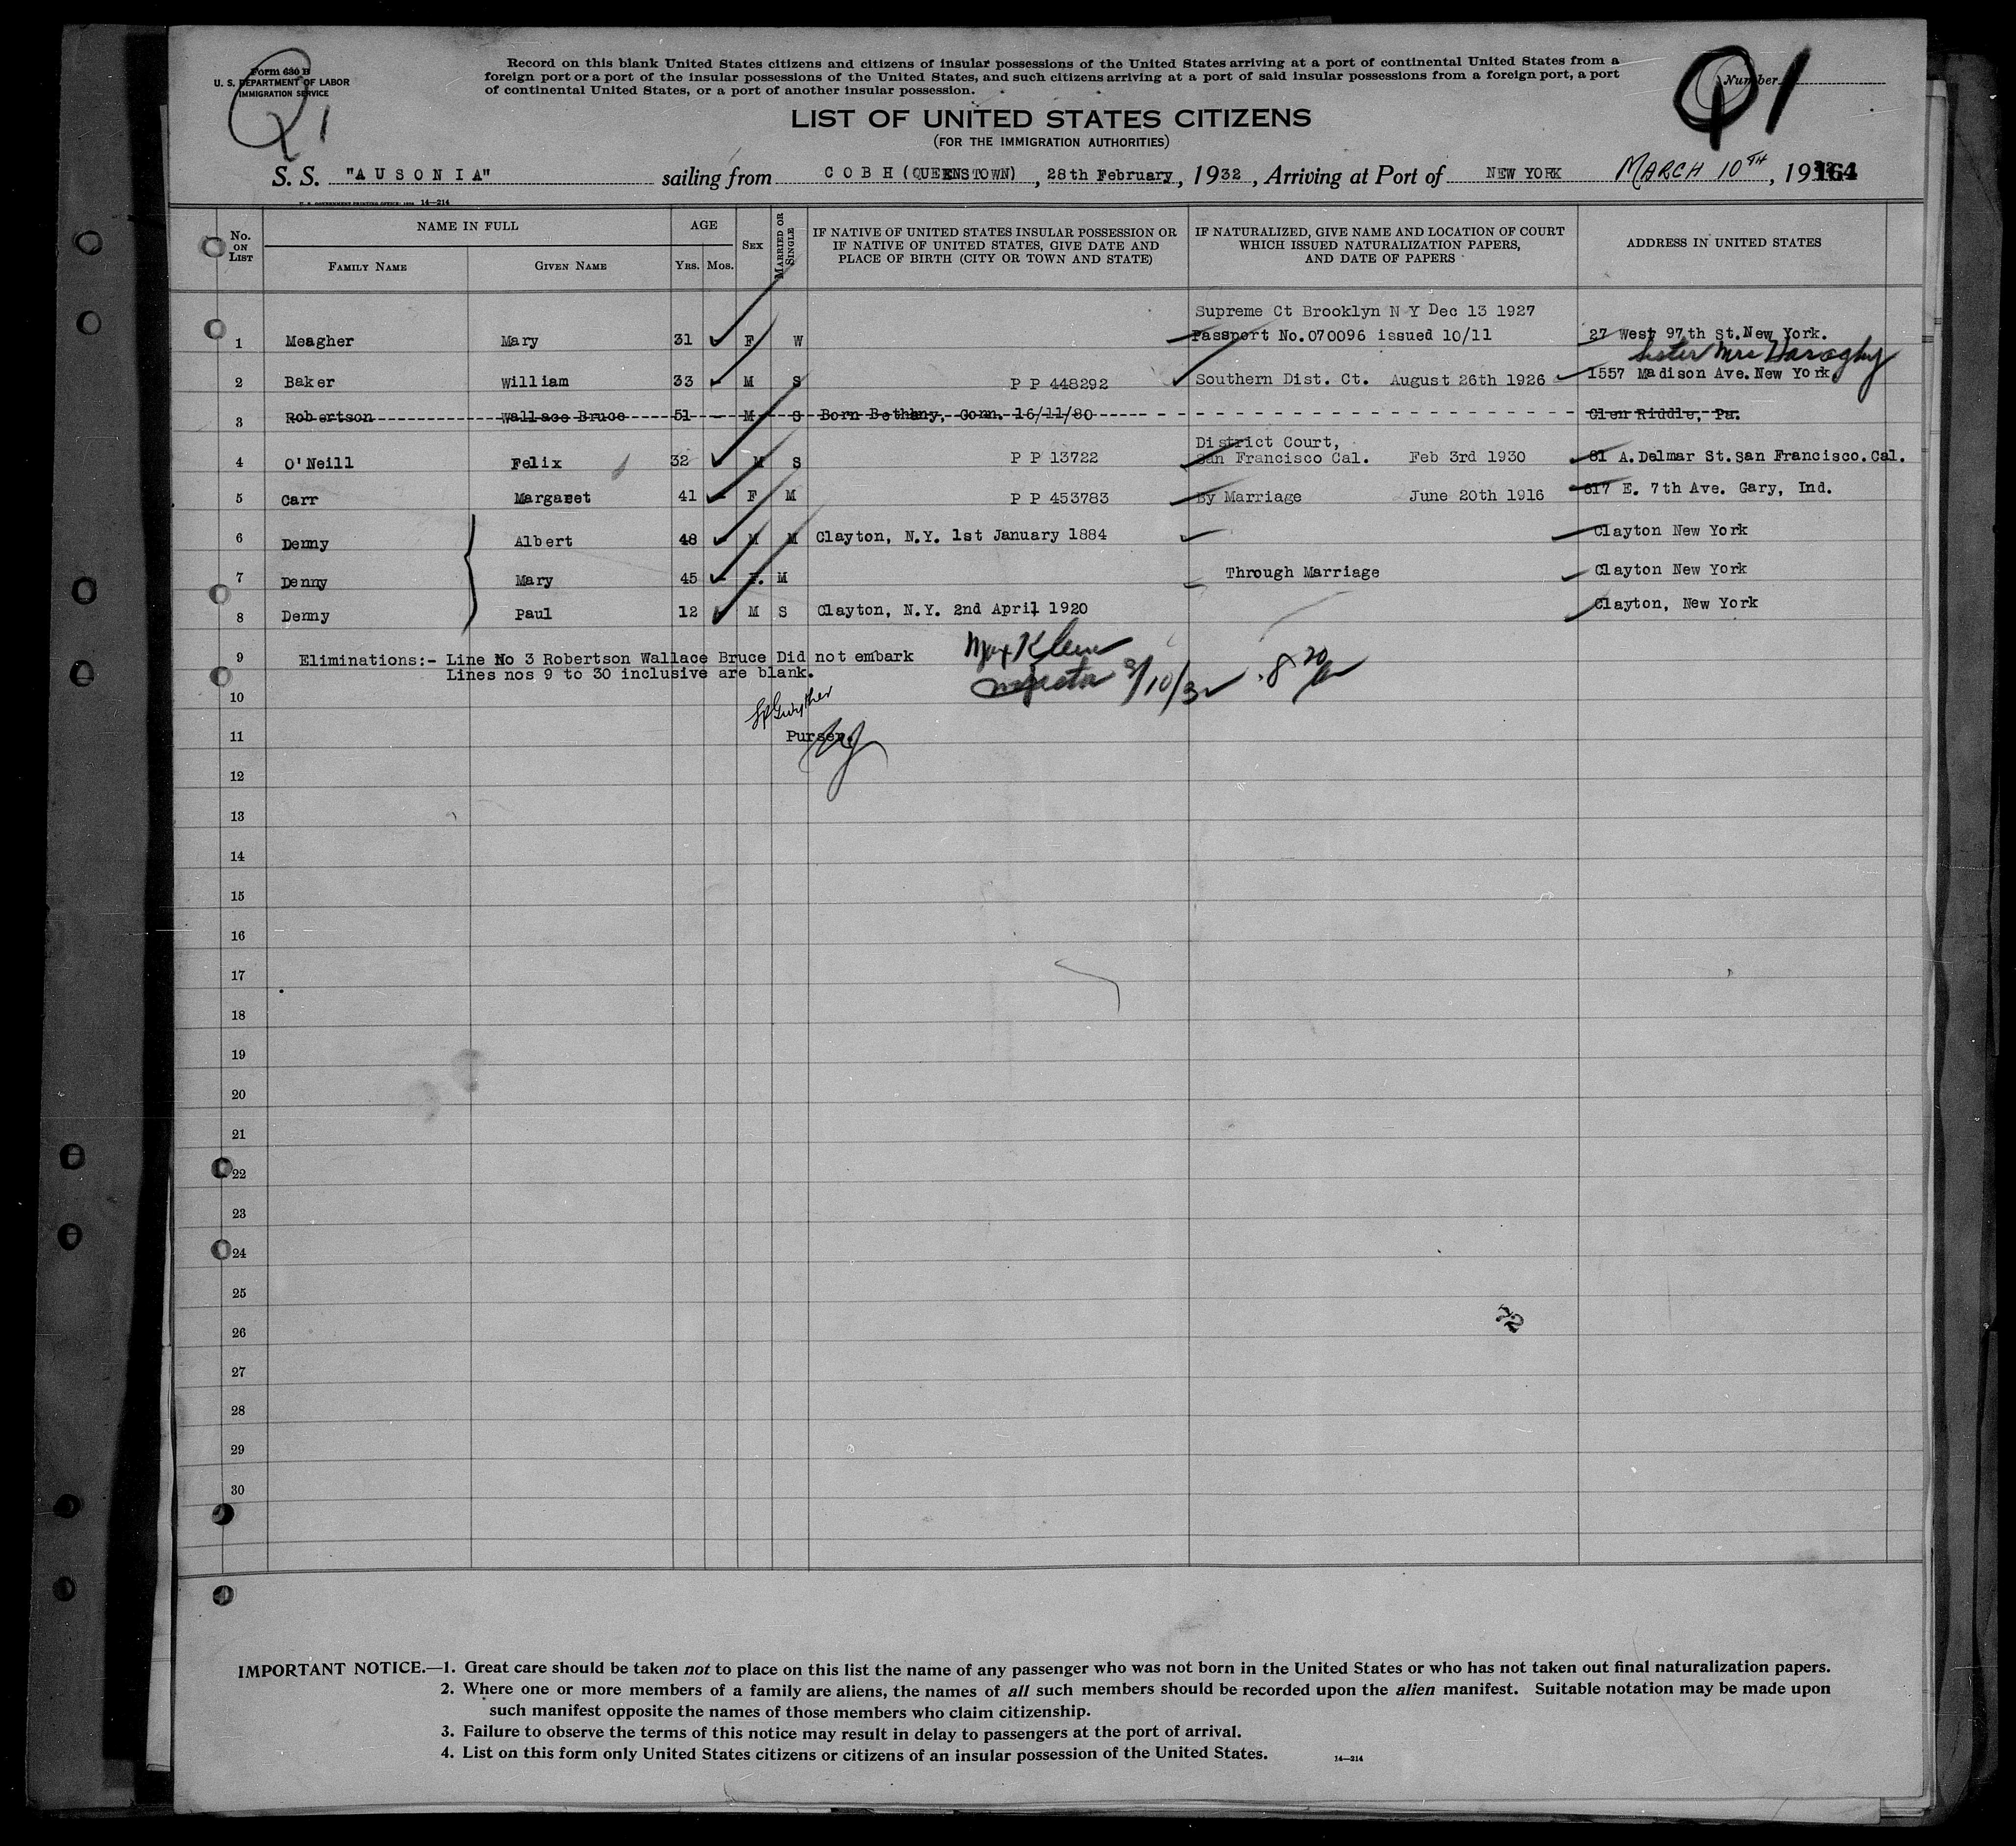 Form 630 B
U. S. DEPARTMENT OF LABOR
IMMIGRATION SERVICE
Q1
Record on this blank United States citizens and citizens of insular possessions of the United States arriving at a port of continental United States from a
foreign port or a port of the insular possessions of the United States, and such citizens arriving at a port of said insular possessions from a foreign port, a port
of continental United States, or a port of another insular possession.
Number
Q1
LIST OF UNITED STATES CITIZENS
(FOR THE IMMIGRATION AUTHORITIES)
S. S. "AUSONIA" sailing from COBH (QUEENSTOWN), 28th February, 1932, Arriving at Port of NEW YORK MARCH 10TH, 19 164
U. S. GOVERNMENT PRINTING OFFICE 14—214
No. ON LIST
NAME IN FULL
FAMILY NAME
GIVEN NAME
AGE
YRS. MOS.
SEX
MARRIED OR SINGLE
IF NATIVE OF UNITED STATES INSULAR POSSESSION OR
IF NATIVE OF UNITED STATES, GIVE DATE AND
PLACE OF BIRTH (CITY OR TOWN AND STATE)
IF NATURALIZED, GIVE NAME AND LOCATION OF COURT
WHICH ISSUED NATURALIZATION PAPERS,
AND DATE OF PAPERS
ADDRESS IN UNITED STATES
Supreme Ct Brooklyn N Y Dec 13 1927
1 Meagher Mary 31 F W Passport No.070096 issued 10/11 27 West 97th St.New York.
Sister Mrs
2 Baker William 33 M S P P 448292 Southern Dist. Ct. August 26th 1926 1557 Madison Ave.New York.
3 Robertson Wallace Bruce 51 M S Born Bethany, Conn. 16/11/80 Glen Riddle, Pa.
District Court,
4 O'Neill Felix 32 M S P P 13722 San Francisco Cal. Feb 3rd 1930 81 A.Delmar St.San Francisco.Cal.
5 Carr Margaret 41 F M P P 453783 By Marriage June 20th 1916 617 E. 7th Ave. Gary, Ind.
6 Denny Albert 48 M M Clayton, N.Y. 1st January 1884 Clayton New York
7 Denny Mary 45 F. M Through Marriage Clayton New York
8 Denny Paul 12 M S Clayton, N.Y. 2nd April 1920 Clayton, New York
9 Eliminations:- Line No 3 Robertson Wallace Bruce Did not embark Max Klein
Lines nos 9 to 30 inclusive are blank. Inspector 3/10/32 8 20
10
11 Purser.
12
13
14
15
16
17
18
19
20
21
22
23
24
25
26
27
28
29
30
22
IMPORTANT NOTICE.—1. Great care should be taken not to place on this list the name of any passenger who was not born in the United States or who has not taken out final naturalization papers.
2. Where one or more members of a family are aliens, the names of all such members should be recorded upon the alien manifest. Suitable notation may be made upon
such manifest opposite the names of those members who claim citizenship.
3. Failure to observe the terms of this notice may result in delay to passengers at the port of arrival.
4. List on this form only United States citizens or citizens of an insular possession of the United States.
14—214